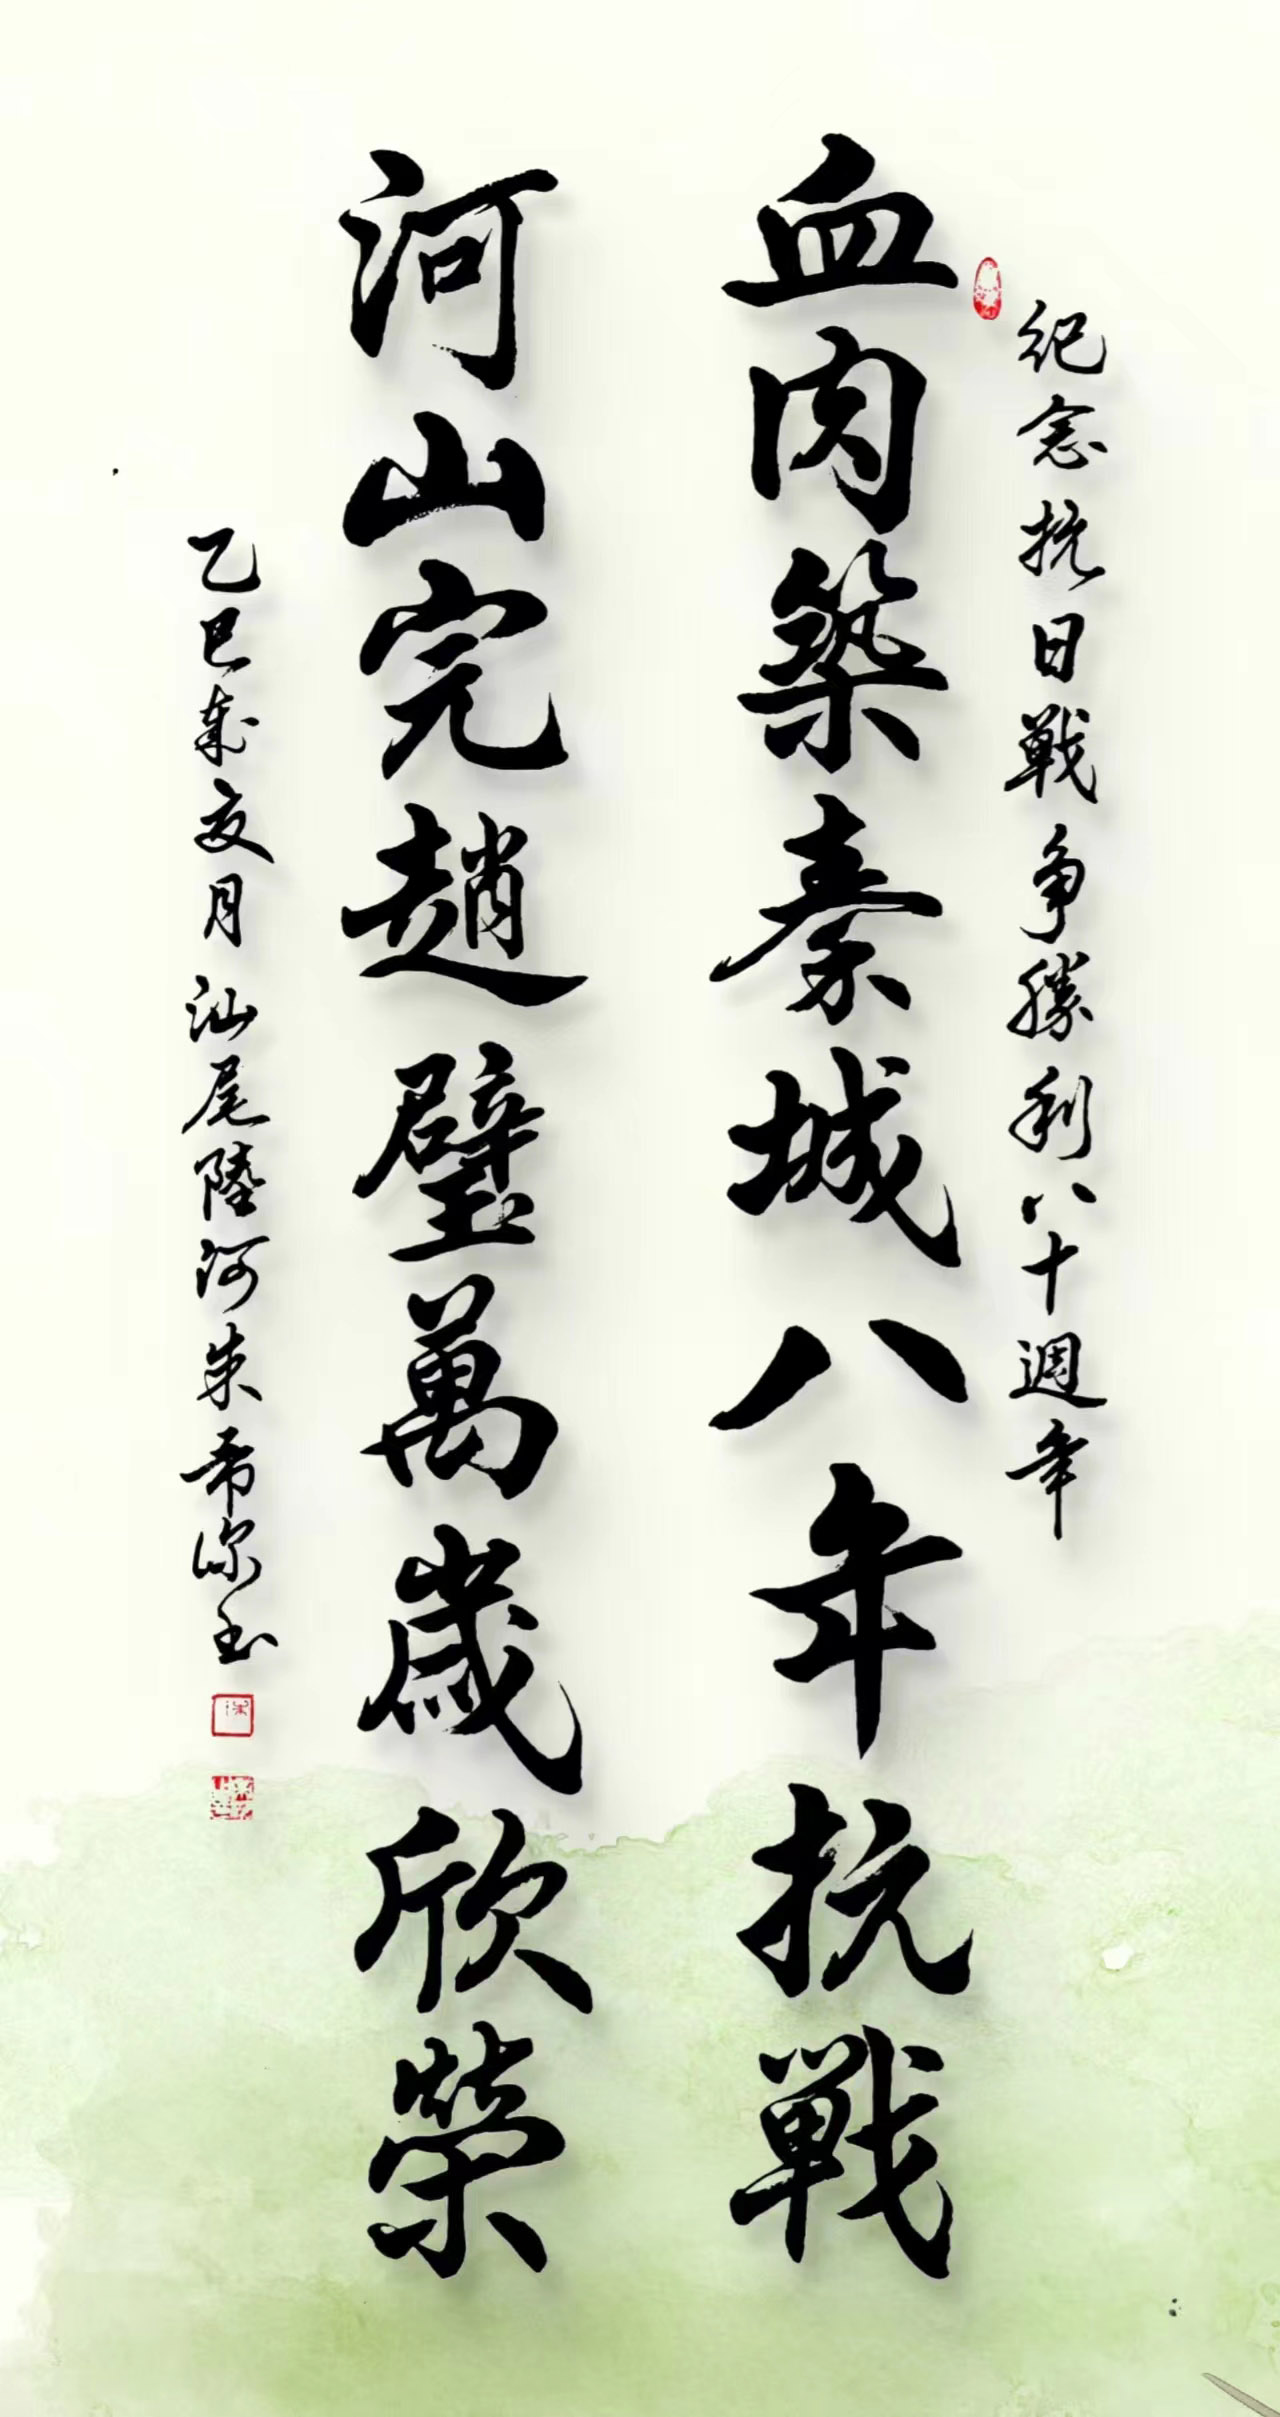 紀念抗日戰爭勝利八十週年
血肉築秦城八年抗戰
河山完趙璧萬歲欣榮
乙巳歲夏月汕尾陸河朱希深書